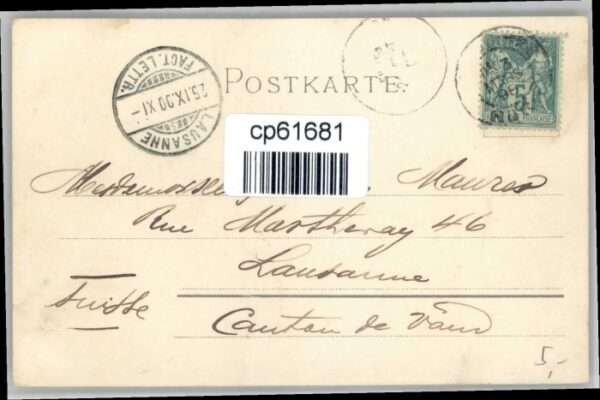 POSTKARTE.
LAUSANNE
25.IX.00 XI-
FACT. LETTR.
5
cp61681
Maurex
Rue Martheray 46
Lausanne
Suisse
Canton de Vaud
5,-